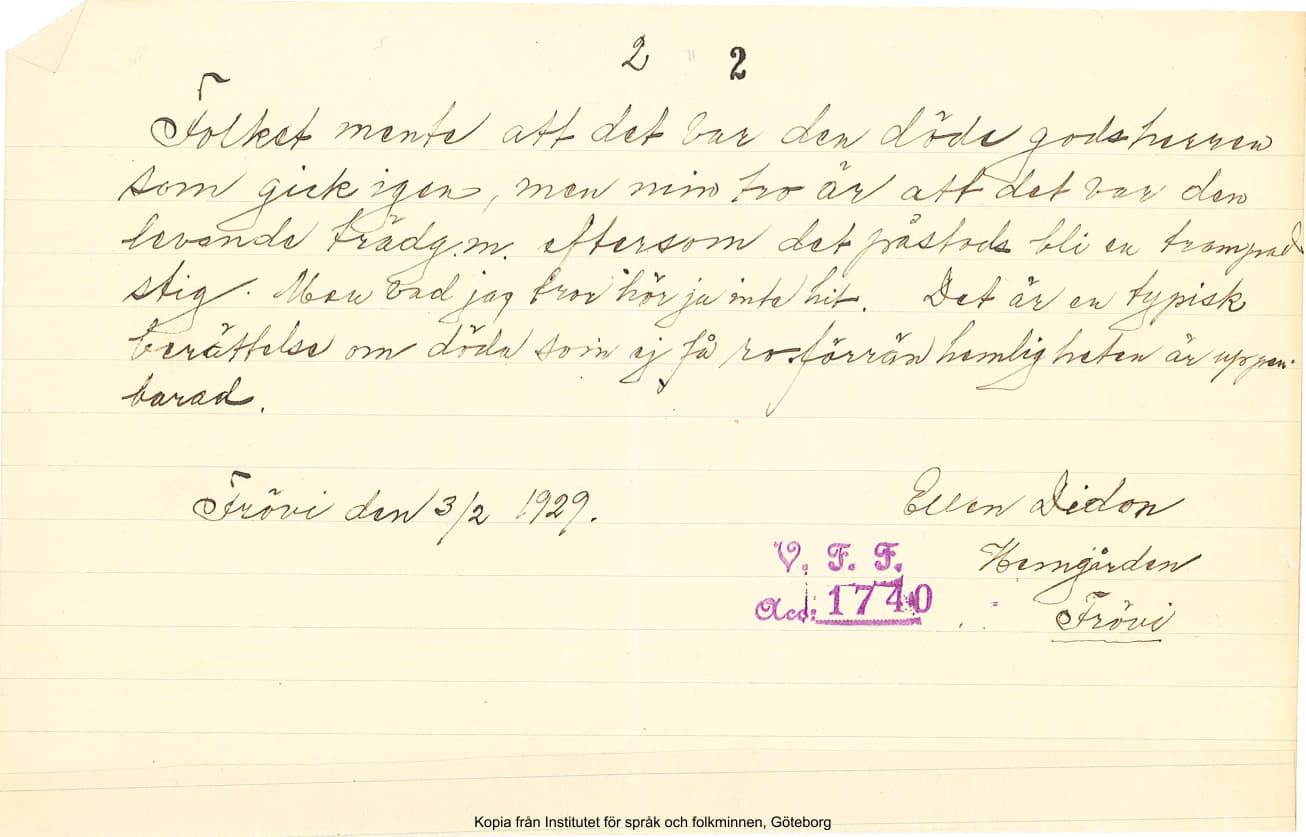 2 2
Folket mente att det var den döde godsherren
som gick igen, men min tro är att det var den
levande trädg.m. eftersom det påstods bli en trampad
stig. Men vad jag tror hör ju inte hit. Det är en typisk
berättelse om döda som ej få ro förrän hemligheten är uppen-
barad.
Frövi den 3/2 1929.
Ellen Didon
V. F. F.
Hemgården
Acc: 1740
Frövi
Kopia från Institutet för språk och folkminnen, Göteborg